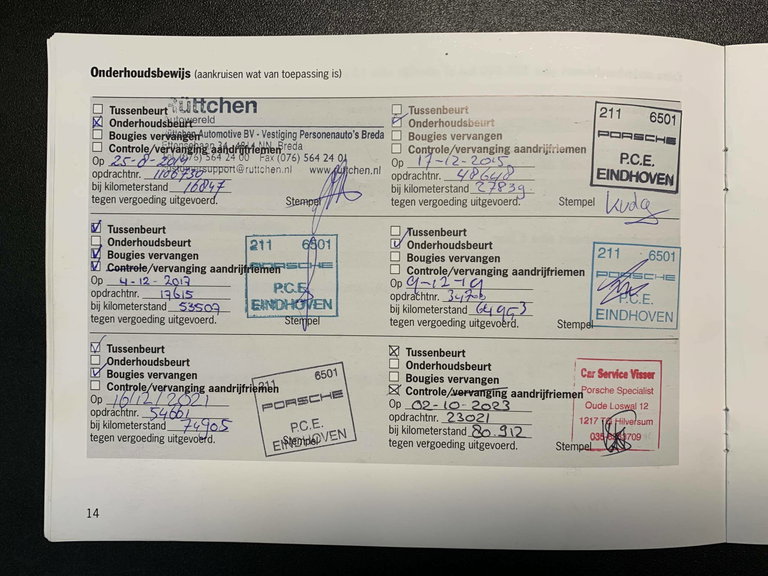 Onderhoudsbewijs (aankruisen wat van toepassing is)
Tussenbeurt
Onderhoudsbeurt
Bougies vervangen
Controle/vervanging aandrijfriemen
rüttchen
autowereld
Rüttchen Automotive BV - Vestiging Personenauto's Breda
NN Breda
(076) 564 24 00 Fax (076) 564 24 01
support@ruttchen.nl www.ruttchen.nl
Op 25-8-2014
opdrachtnr. 1106730
bij kilometerstand 16847
tegen vergoeding uitgevoerd. Stempel
Tussenbeurt
Onderhoudsbeurt
Bougies vervangen
Controle/vervanging aandrijfriemen
Op 17-12-2015
opdrachtnr. 48648
bij kilometerstand 27839
tegen vergoeding uitgevoerd. Stempel
211 6501
PORSCHE
P.C.E.
EINDHOVEN
Tussenbeurt
Onderhoudsbeurt
Bougies vervangen
Controle/vervanging aandrijfriemen
Op 4-12-2017
opdrachtnr. 17615
bij kilometerstand 53507
tegen vergoeding uitgevoerd. Stempel
211 6501
PORSCHE
P.C.E.
EINDHOVEN
Tussenbeurt
Onderhoudsbeurt
Bougies vervangen
Controle/vervanging aandrijfriemen
Op 9-12-19
opdrachtnr.
bij kilometerstand 64953
tegen vergoeding uitgevoerd. Stempel
211 6501
PORSCHE
P.C.E.
EINDHOVEN
Tussenbeurt
Onderhoudsbeurt
Bougies vervangen
Controle/vervanging aandrijfriemen
Op 16/12/2021
opdrachtnr. 54661
bij kilometerstand 74905
tegen vergoeding uitgevoerd. Stempel
211 6501
PORSCHE
P.C.E.
EINDHOVEN
Tussenbeurt
Onderhoudsbeurt
Bougies vervangen
Controle/vervanging aandrijfriemen
Op 02-10-2023
opdrachtnr. 23021
bij kilometerstand 80.912
tegen vergoeding uitgevoerd. Stempel
Car Service Visser
Porsche Specialist
Oude Loswal 12
1217 Hilversum
14